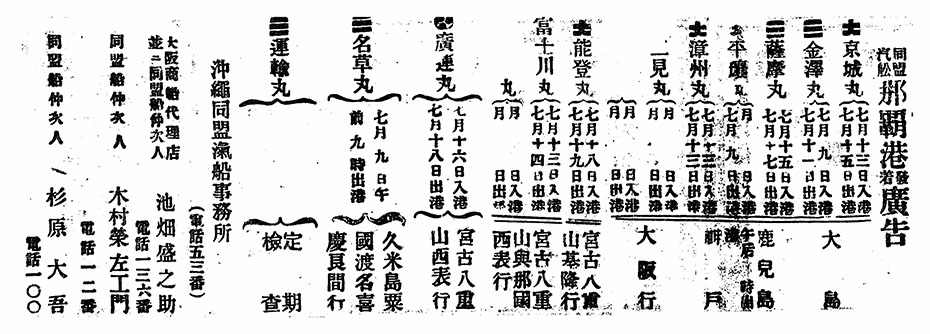 同盟汽舩那覇港發着廣告
大京城丸 七月十三日入港 七月十五日出港
三金澤丸 七月九日入港 七月十一日出港
大島
三薩摩丸 七月十五日入港 七月十七日出港
平壤丸 七月九日出港 午后時出港
鹿兒島
大漳州丸 七月十三日入港 七月十三日出港
神戸
一見丸 月日入港 月日出港
月日入港 月日出港
大阪行
大能登丸 七月十八日入港 七月十九日出港
宮古八重山基隆行
富士川丸 七月十三日入港 七月十四日出港
宮古八重山與那國
丸 月日入港 月日出港
西表行
廣運丸 七月十六日入港 七月十八日出港
宮古八重山西表行
三名草丸 七月九日午前九時出港
久米島粟國渡名喜慶良間行
三運輸丸
定期檢査
沖繩同盟滊船事務所
(電話五三番)
大阪商船代理店並ニ同盟船仲次人 池畑盛之助
電話一三六番
同盟船仲次人 木村榮左工門
電話一二番
同盟船仲次人 杉原大吾
電話一〇〇